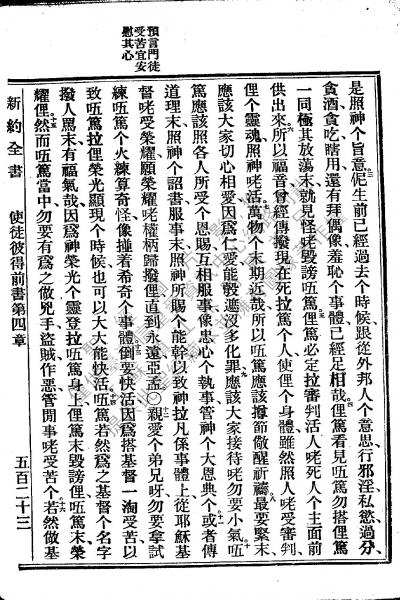 預言門徒
受苦宜安
慰其心
是照神个旨意、伲生前已經過去个時候跟從外邦人个意思、行邪淫私慾、過分
貪酒、貪吃、瞎用、還有拜偶像羞恥个事體、已經足哉、俚篤看見㕶篤勿搭俚篤
一同極其放蕩末、就見怪咾毀謗㕶篤、俚篤必定拉審判活人咾死人个主面前
供出來、所以福音曾經傳撥現在死拉篤个人、使俚个身體雖然照人咾受審判、
俚个靈魂照神咾活、萬物个末期近哉、所以㕶篤應該撙節儆醒祈禱、最要緊末、
應該大家切心相愛、因爲仁愛能彀遮沒多化罪、應該大家接待咾勿要小氣、㕶
篤應該照各人所受个恩賜、互相服事、像忠心个執事管神个大恩典个、或者傳
道理末、照神个詔書、服事末、照神所賜个能幹、以致神拉凡係事體上從耶穌基
督咾受榮耀、願榮耀咾權柄歸撥俚、直到永遠亞孟、○親愛个弟兄呀、勿要拿試
練㕶篤个火練算奇怪、像撞着希奇个事體、倒要快活、因爲搭基督一淘受苦、以
致㕶篤拉俚榮光顯現个時候、也可以大大能快活、㕶篤若然爲之基督个名字
撥人罵末、有福氣哉、因爲神榮光个靈登拉㕶篤身上、俚篤末毀謗俚、㕶篤末榮
耀俚、然而㕶篤當中勿要有爲之做兇手、盜賊、作惡、管閒事咾受苦个、若然做基
新約全書 使徒彼得前書第四章 五百二十三